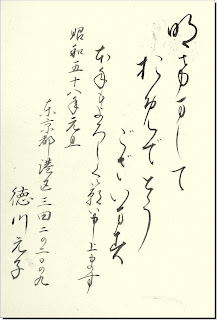 明けまして
おめでとう
ございます
本年もよろしく御願い申上げます
昭和五十八年元旦
東京都港区三田二の二の九
徳川元子